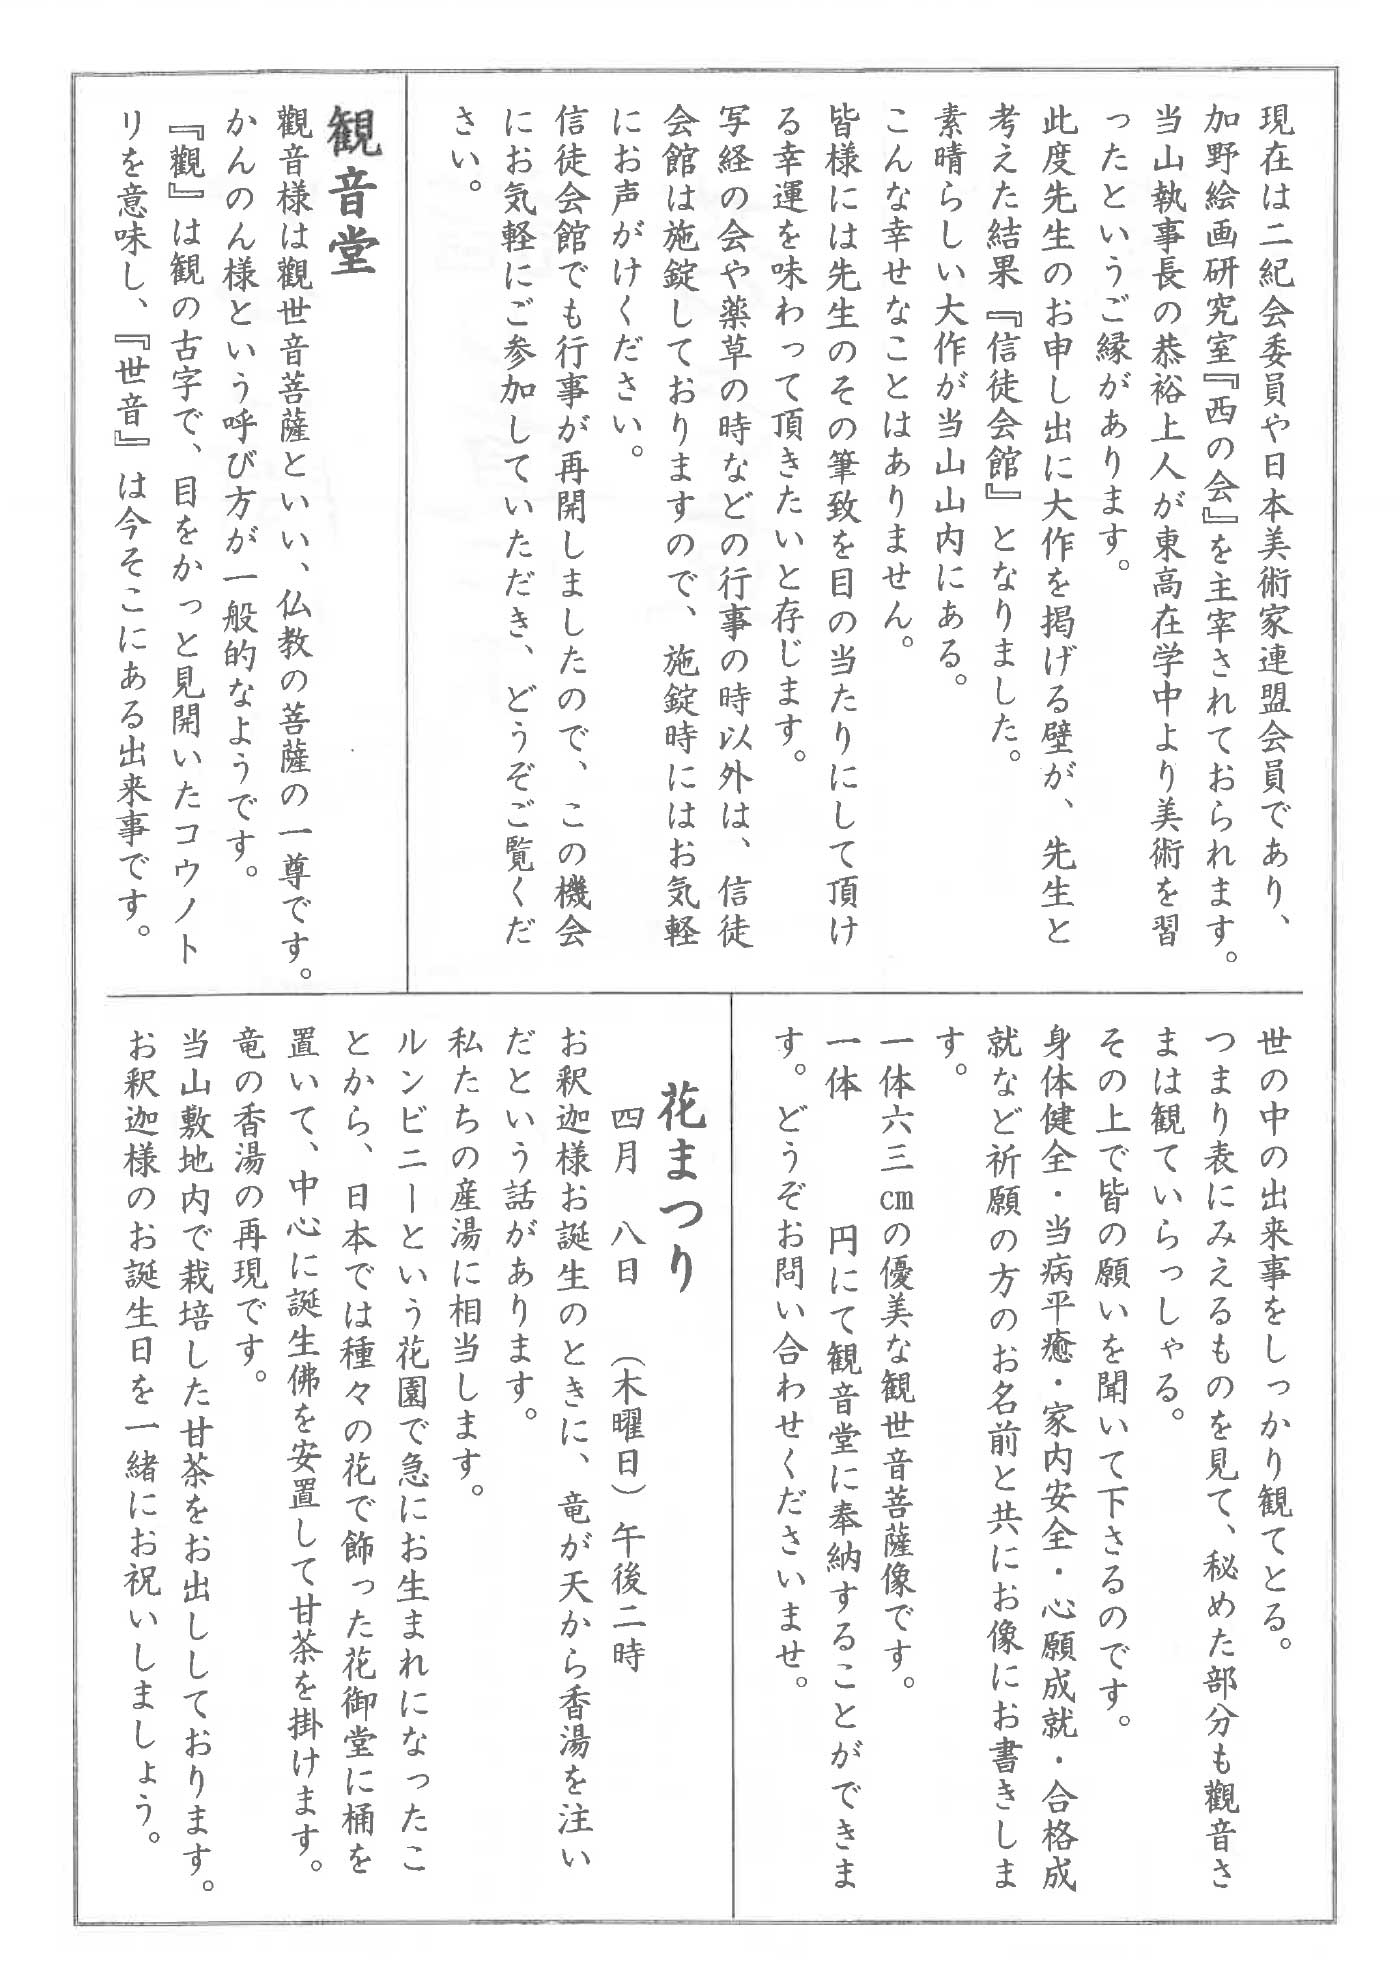 現在は二紀会委員や日本美術家連盟会員であり、
加野絵画研究室『西の会』を主宰されておられます。
当山執事長の恭裕上人が東高在学中より美術を習
ったというご縁があります。
此度先生のお申し出に大作を掲げる壁が、先生と
考えた結果『信徒会館』となりました。
素晴らしい大作が当山山内にある。
こんな幸せなことはありません。
皆様には先生のその筆致を目の当たりにして頂け
る幸運を味わって頂きたいと存じます。
写経の会や薬草の時などの行事の時以外は、信徒
会館は施錠しておりますので、施錠時にはお気軽
にお声がけください。
信徒会館でも行事が再開しましたので、この機会
にお気軽にご参加していただき、どうぞご覧くだ
さい。
観音堂
觀音様は觀世音菩薩といい、仏教の菩薩の一尊です。
かんのん様という呼び方が一般的なようです。
『觀』は観の古字で、目をかっと見開いたコウノト
リを意味し、『世音』は今そこにある出来事です。
世の中の出来事をしっかり観てとる。
つまり表にみえるものを見て、秘めた部分も觀音さ
まは観ていらっしゃる。
その上で皆の願いを聞いて下さるのです。
身体健全・当病平癒・家内安全・心願成就・合格成
就など祈願の方のお名前と共にお像にお書きしま
す。
一体六三㎝の優美な観世音菩薩像です。
一体　　　円にて観音堂に奉納することができま
す。どうぞお問い合わせくださいませ。
花まつり
四月　八日　（木曜日）午後二時
お釈迦様お誕生のときに、竜が天から香湯を注い
だという話があります。
私たちの産湯に相当します。
ルンビニーという花園で急にお生まれになったこ
とから、日本では種々の花で飾った花御堂に桶を
置いて、中心に誕生佛を安置して甘茶を掛けます。
竜の香湯の再現です。
当山敷地内で栽培した甘茶をお出ししております。
お釈迦様のお誕生日を一緒にお祝いしましょう。